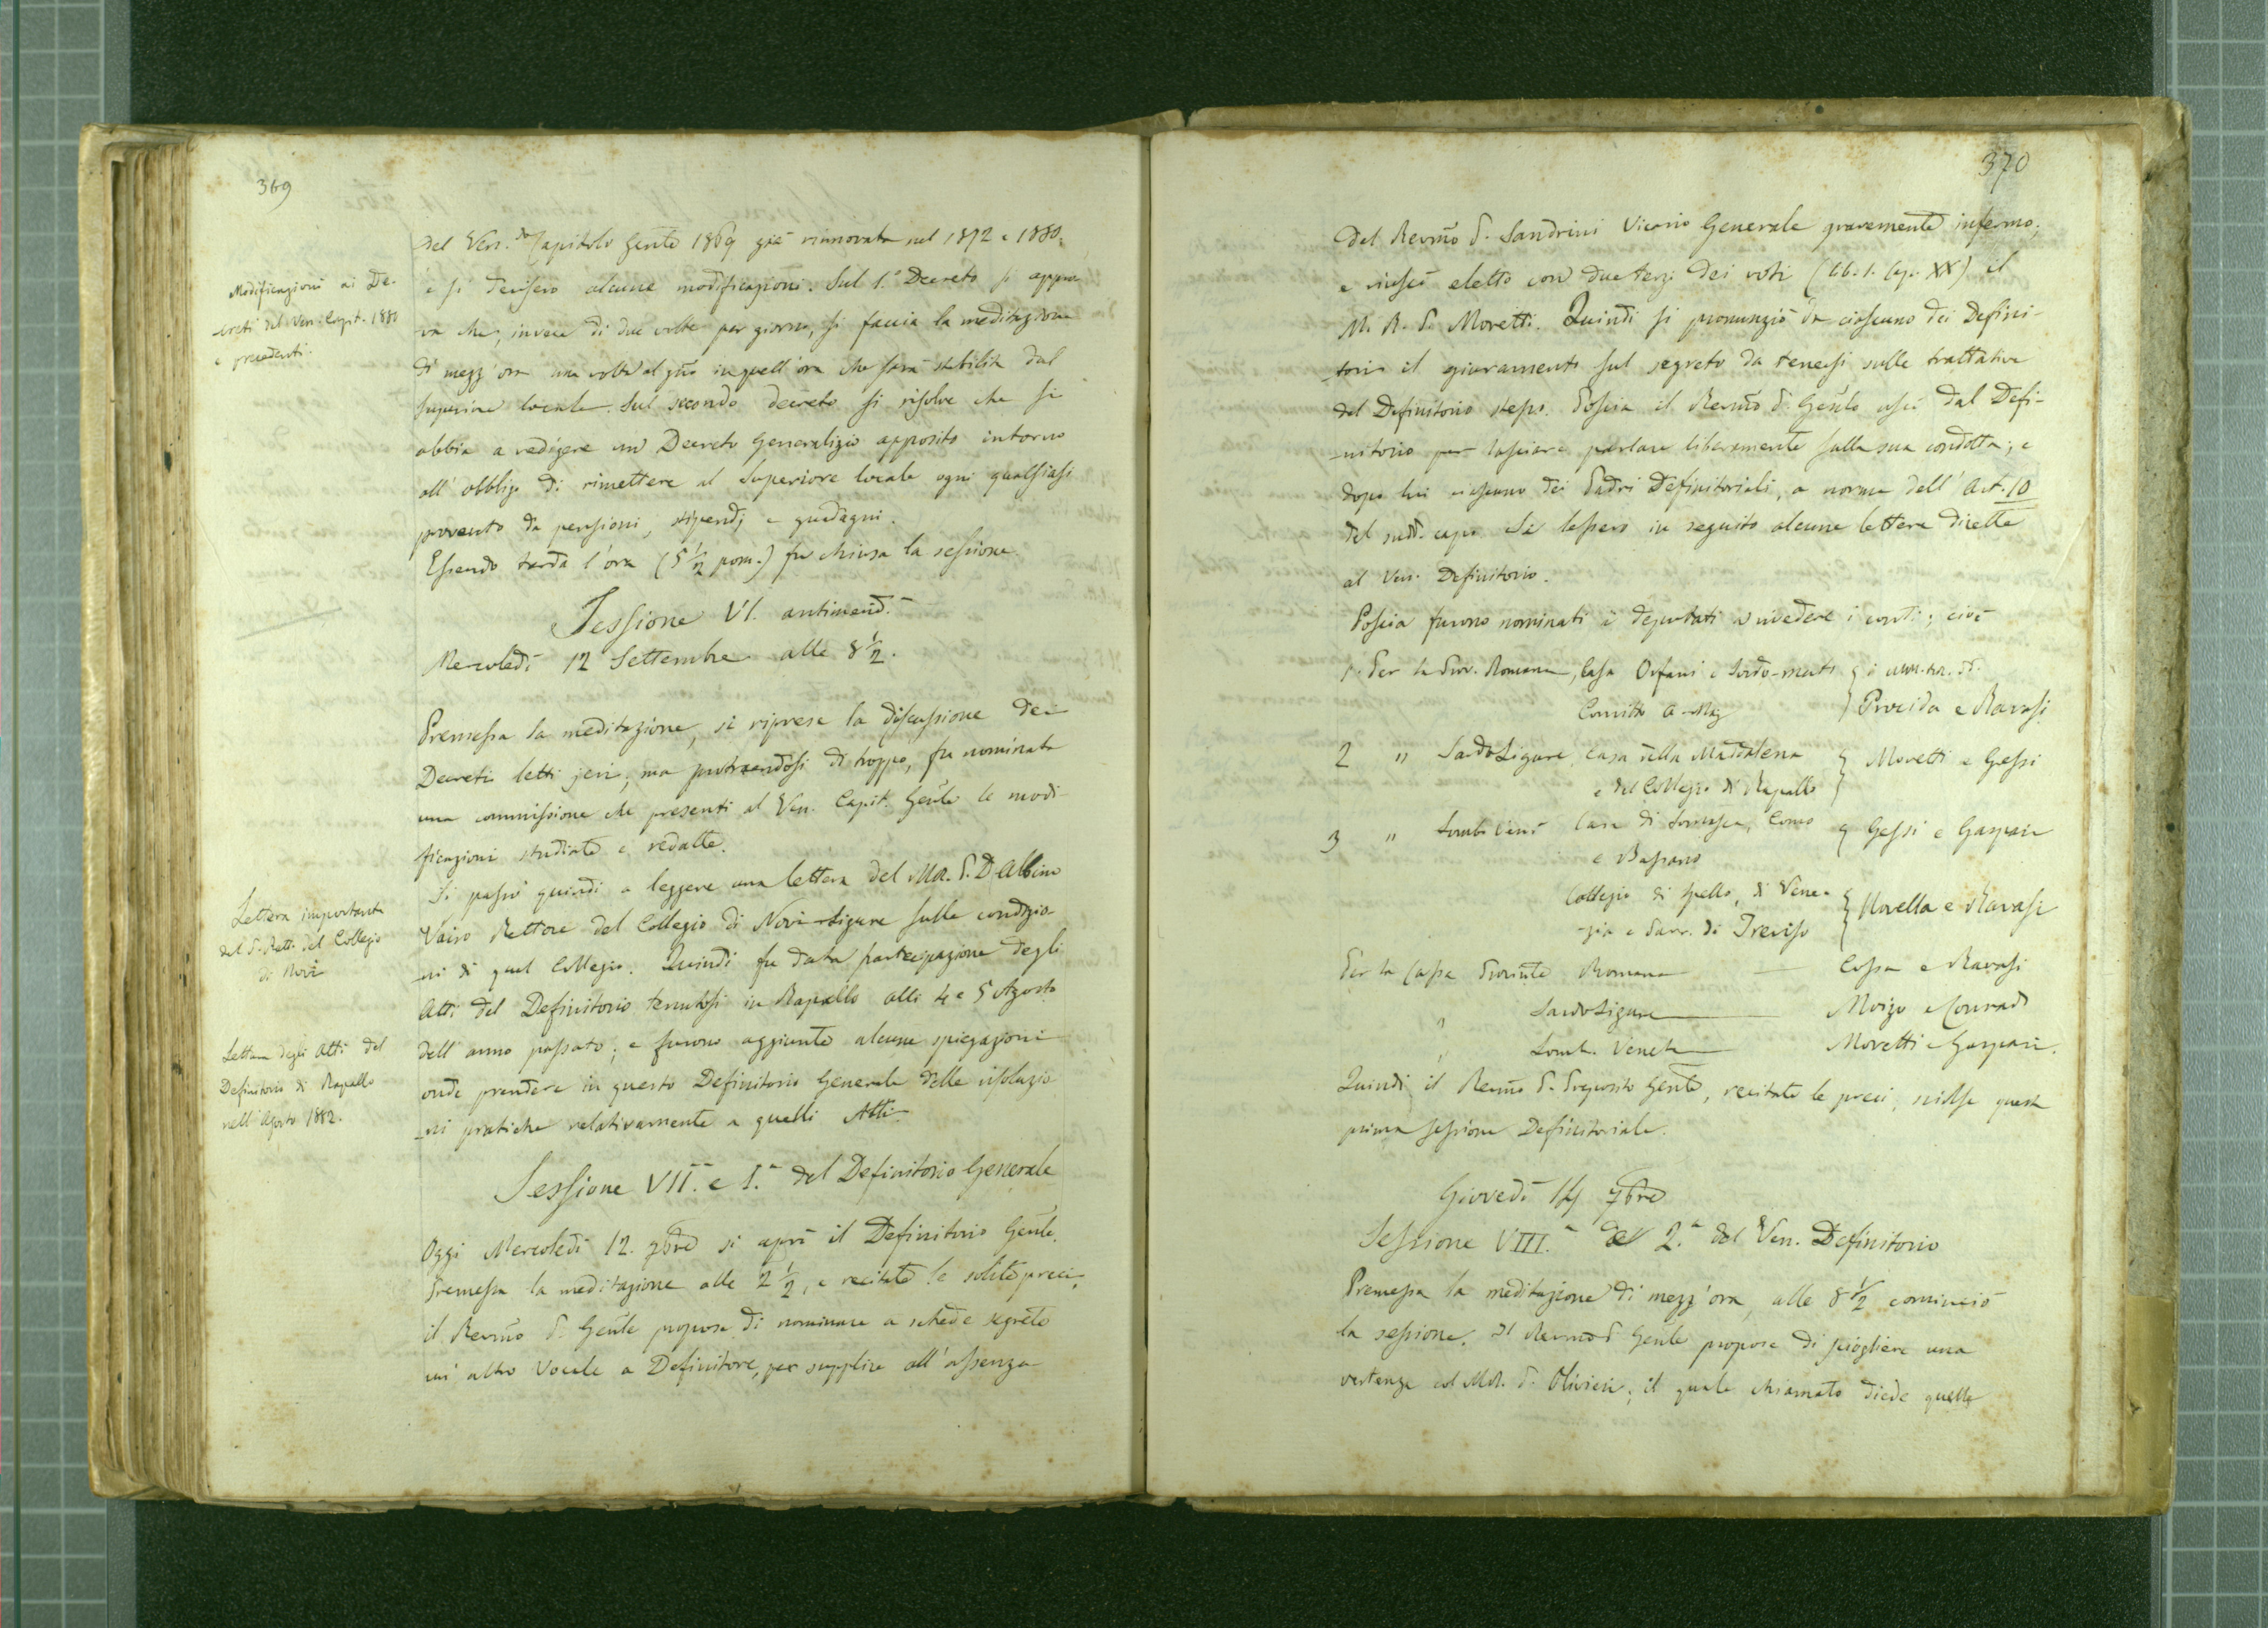 369
del Ven.do Capitolo Gente 1869 già rinnovata nel 1872 e 1880;
Modificazioni ai De-
creti del Ven. Capit. 1880
e precedenti.
e si decisero alcune modificazioni. Sul 1.° Decreto si appro-
va che, invece di due volte per giorno, si faccia la meditazione
di mezz'ora una volta al gno in quell'ora che sarà stabilita dal
superiore locale. Sul secondo decreto si risolve che si
abbia a redigere un Decreto Generalizio apposito intorno
all'obbligo di rimettere al Superiore locale ogni qualsiasi
provento da pensioni, stipendj e guadagni.
Essendo tarda l'ora (5 1/2 pom.) fu chiusa la sessione.
Sessione VI. antimerid.
Mercoledì 12 Settembre alle 8 1/2.
Premessa la meditazione, si riprese la discussione dei
Decreti letti jeri; ma protraendosi di troppo, fu nominata
una commissione che presenti al Ven. Capit. Genle le modi-
ficazioni studiate e redatte.
Si passò quindi a leggere una lettera del MR. P. D. Albino
Lettera importante
del P. Rett. del Collegio
di Novi
Vairo Rettore del Collegio di Novi-Ligure sulle condizio-
ni di quel Collegio. Quindi fu data partecipazione degli
Atti del Definitorio tenutosi in Rapallo alli 4 e 5 Agosto
Lettura degli Atti del
Definitorio di Rapallo
nell'Agosto 1882.
dell'anno passato; e furono aggiunte alcune spiegazioni
onde prendere in questo Definitorio Generale delle risoluzio-
ni pratiche relativamente a quelli Atti.
Sessione VII. e I.a del Definitorio Generale
Oggi Mercoledì 12. 7bre si aprì il Definitorio Genle.
Premessa la meditazione alle 2 1/2, e recitate le solite preci,
il Revmo P. Genle propose di nominare a schede segrete
un altro Vocale a Definitore, per supplire all'assenza
370
del Revmo P. Sandrini Vicario Generale gravemente infermo;
e riuscì eletto con due terzi dei voti (lib. 1. Cap. XX) il
M. R. P. Moretti. Quindi si pronunziò da ciascuno dei Defini-
tori il giuramento sul segreto da tenersi sulle trattative
del Definitorio stesso. Poscia il Revmo P. Genle uscì dal Defi-
nitorio per lasciare parlare liberamente sulla sua condotta; e
dopo lui ciascuno dei Padri Definitoriali, a norma dell'Art. 10
del sudd. capo. Si lessero in seguito alcune lettere dirette
al Ven. Definitorio.
Poscia furono nominati i deputati a rivedere i conti; cioè
1. Per la Prov. Romana, Casa Orfani e Sordo-muti } i MM. RR. PP.
Convitto A-Maz } Procida e Ravasi
2 " Sardo Ligure, Casa della Maddalena } Moretti e Gessi
e del Collegio di Rapallo
3 " Lomb Ven. Casa di Somasca, Como } Gessi e Gaspari
e Bassano
Collegio di Spello, di Vene-
zia e Parr. di Treviso } Novella e Ravasi
Per la Cassa Provinle Romana — Cossa e Ravasi
" Sardo Ligure — Moizo e Conrado
" Lomb. Veneta — Moretti e Gaspari.
Quindi il Revmo P. Preposito Genle, recitate le preci, sciolse questa
prima sessione Definitoriale.
Giovedì 14 7bre
Sessione VIII.a 2.a del Ven. Definitorio
Premessa la meditazione di mezz'ora, alle 8 1/2 cominciò
la sessione. Il Revmo P. Genle propose di sciogliere una
vertenza col MR. P. Olivieri; il quale chiamato diede quelle